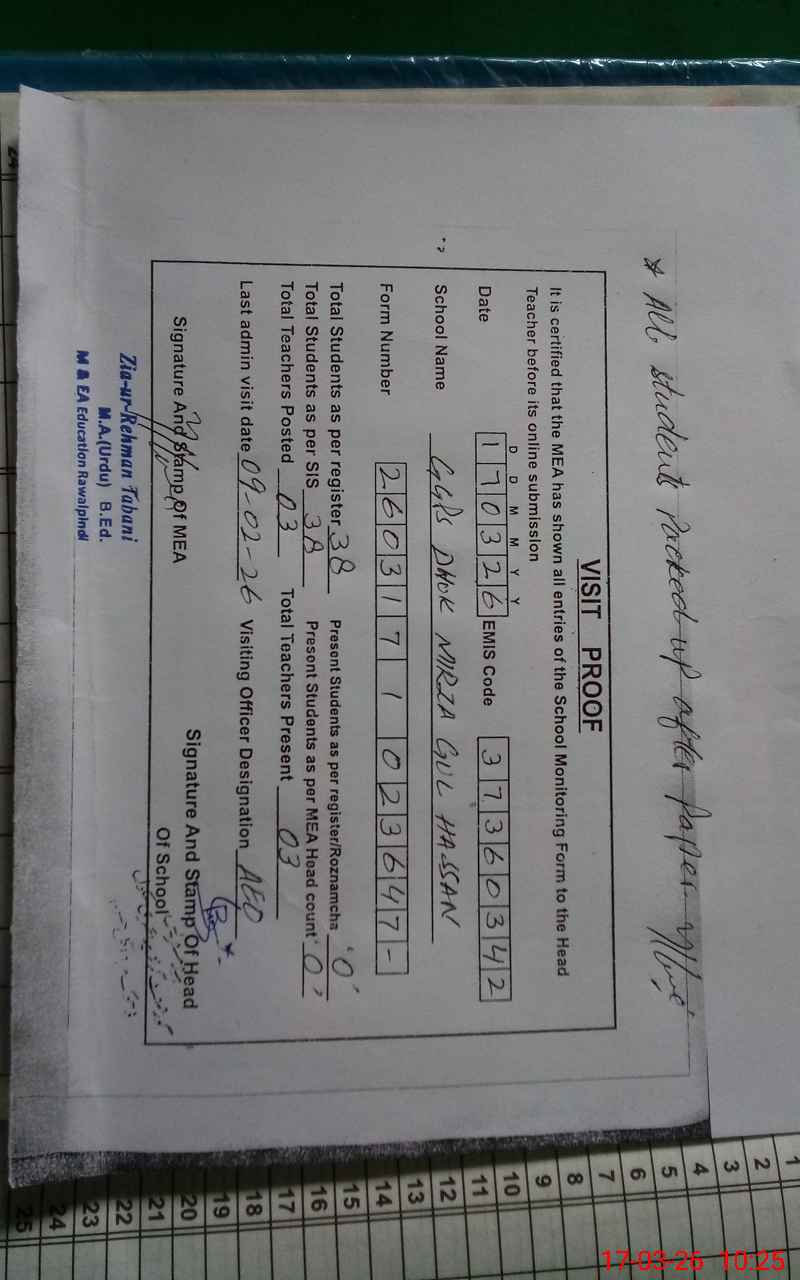 * All student Packed up after Paper.
VISIT PROOF
It is certified that the MEA has shown all entries of the School Monitoring Form to the Head
Teacher before its online submission
D D M M Y Y
Date 170326 EMIS Code 37360342
School Name GGPS DHOK MIRZA GUL HASSAN
Form Number 2603171023647-
Total Students as per register 38 Present Students as per register/Roznamcha '0'
Total Students as per SIS 38 Present Students as per MEA Head count '0'
Total Teachers Posted 03 Total Teachers Present 03
Last admin visit date 09-02-26 Visiting Officer Designation AEO
Signature And Stamp Of MEA
Signature And Stamp Of Head
Of School
Zia-ur-Rehman Tabani
M.A.(Urdu) B.Ed.
M & EA Education Rawalpindi
1
2
3
4
5
6
7
8
9
10
11
12
13
14
15
16
17
18
19
20
21
22
23
24
25
24
17-03-26 10:25